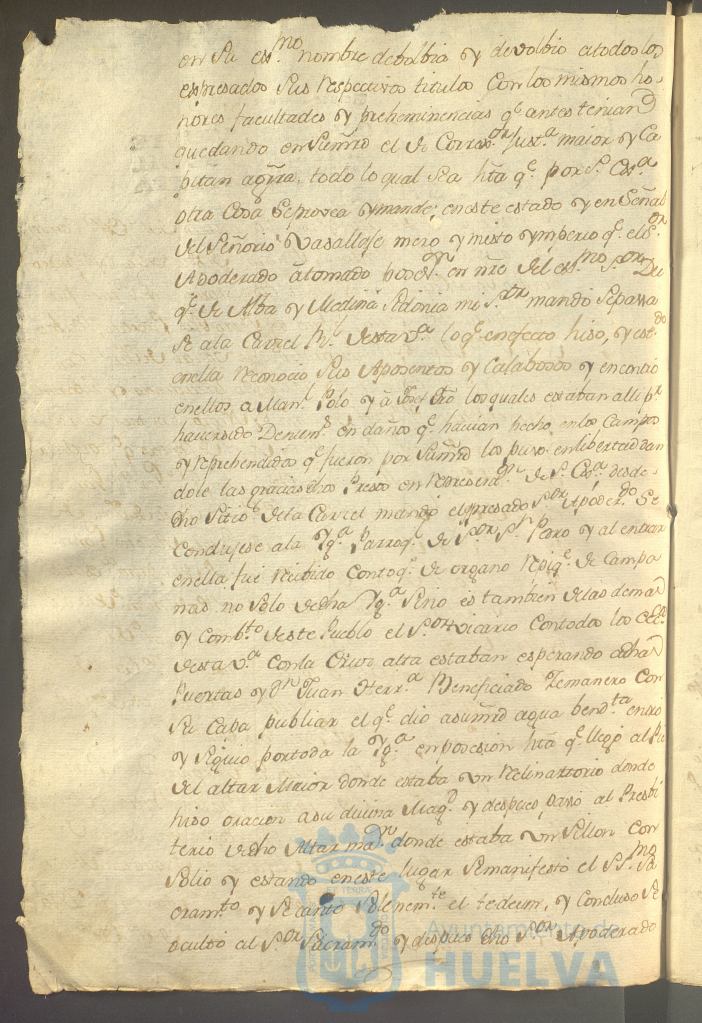 en su exs.mo nombre debolbia y devolbio atodos los
espresados sus respectivos titulos con los mismos ho-
nores facultades y preheminencias q.e antes tenian
quedando en sumrd el de Corres.or Just.a maior y Ca
pitan aguerra, todo lo qual sea hta q.e por S. Ex.a
otra Cosa se provea y mande; en este estado y en señal
del señorio Vasallaje mero y misto ymperio q.e el S.or
Apoderado a tomado poses.on en nre del exs.mo S.or Du
q.e de Alba y Medina Sidonia mi S.or mando se pasa
se ala Carcel R.l desta V.a lo q.e en efecto hiso, y est.do
en ella reconocio sus Aposentos y Calabosos y encontro
en ellos a Man.l Polo y á los quales estaban alli p.r
haver sido Denun.s en daños q.e havian hecho en los Campos
y reprehendidos q.e fueron por sumrd los puso en libertad dan
dole las gracias dho Preso en representa.on de S. Ex.a desde
dho sitio de la Carcel mando el espresado S.or Apoder.do se
condujese ala Yg.a Parroq.l de S.or S.n Pedro y al entrar
en ella fue recibido con toq.e de organo repiq.e de campa
nas no solo de dha Yg.a sino es tambien de las demas
y Comb.tos de este Pueblo el S.or vicario con todos los
desta V.a con la Cruz alta estaban esperando a dhas
Puertas y D.n Juan Herr.a Beneficiado semanero con
su capa publiar el q.e dio a sumrd agua bend.ta entró
y siguio por toda la Yg.a en posesion hta q.e llegó al Pie
del altar Maior donde estaba un reclinatorio donde
hiso oracion a su divina Mag.d y despues pasó al Presbi
terio de dho Altar ma.or donde estaba un Sillon con
solio y estando en este lugar se manifestó el SS.mo Sa
cram.to y se cantó solenem.te el tedeum, y concluso se
ocultó al S.or Sacram.do y despues dho S.or Apoderado
Ayuntamiento de
HUELVA